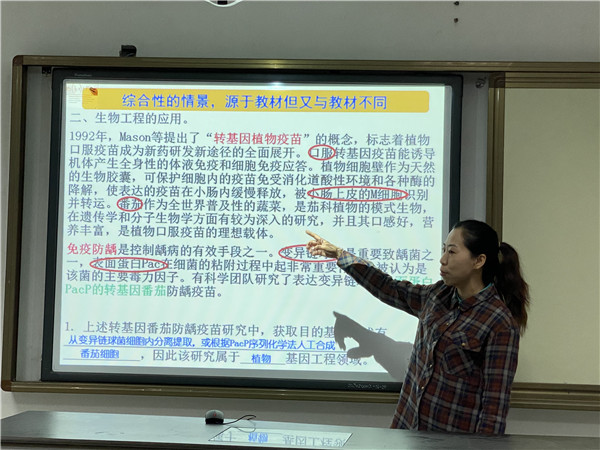 综合性的情景，源于教材但又与教材不同
二、生物工程的应用。
1992年，Mason等提出了“转基因植物疫苗”的概念，标志着植物
口服疫苗成为新药研发新途径的全面展开。口服转基因疫苗能诱导
机体产生全身性的体液免疫和细胞免疫应答。植物细胞壁作为天然
的生物胶囊，可保护细胞内的疫苗免受消化道酸性环境和各种酶的
降解，使表达的疫苗在小肠内缓慢释放，被小肠上皮的M细胞识别
并转运。番茄作为全世界普及性的蔬菜，是茄科植物的模式生物，
在遗传学和分子生物学方面有较为深入的研究，并且其口感好，营
养丰富，是植物口服疫苗的理想载体。
免疫防龋是控制龋病的有效手段之一。变异链 是重要致龋菌之
一，表面蛋白Pac在细菌的粘附过程中起非常重要 被认为是
该菌的主要毒力因子。有科学团队研究了表达变异链 蛋白
PacP的转基因番茄防龋疫苗。
1. 上述转基因番茄防龋疫苗研究中，获取目的基 有
从变异链球菌细胞内分离提取，或根据PacP序列化学法人工合成
番茄细胞 ，因此该研究属于 植物 基因工程领域。